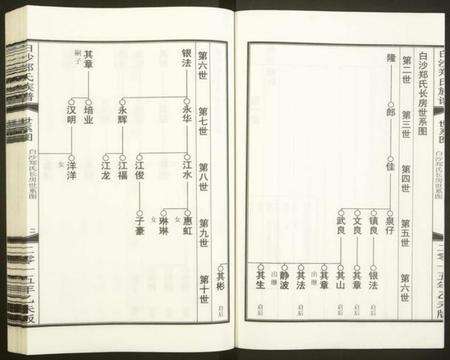 白沙郑氏长房世系图
第二世
第三世
第四世
第五世
第六世
隆
郎
佳
泉仔
镇良
文良
武良
银法
启后
其章
出继
其山
启后
其章
出继
静波
启后
其生
启后
世系图
二〇一五年乙未版
第六世
第七世
第八世
第九世
第十世
银法
其章
嗣子
永华
永辉
培业
汉明
江水
江俊
江福
江龙
洋洋
女
惠虹
女
琳琳
女
子豪
其彬
启后
白沙郑氏族谱
世系图
白沙郑氏长房世系图
二〇一五年乙未版